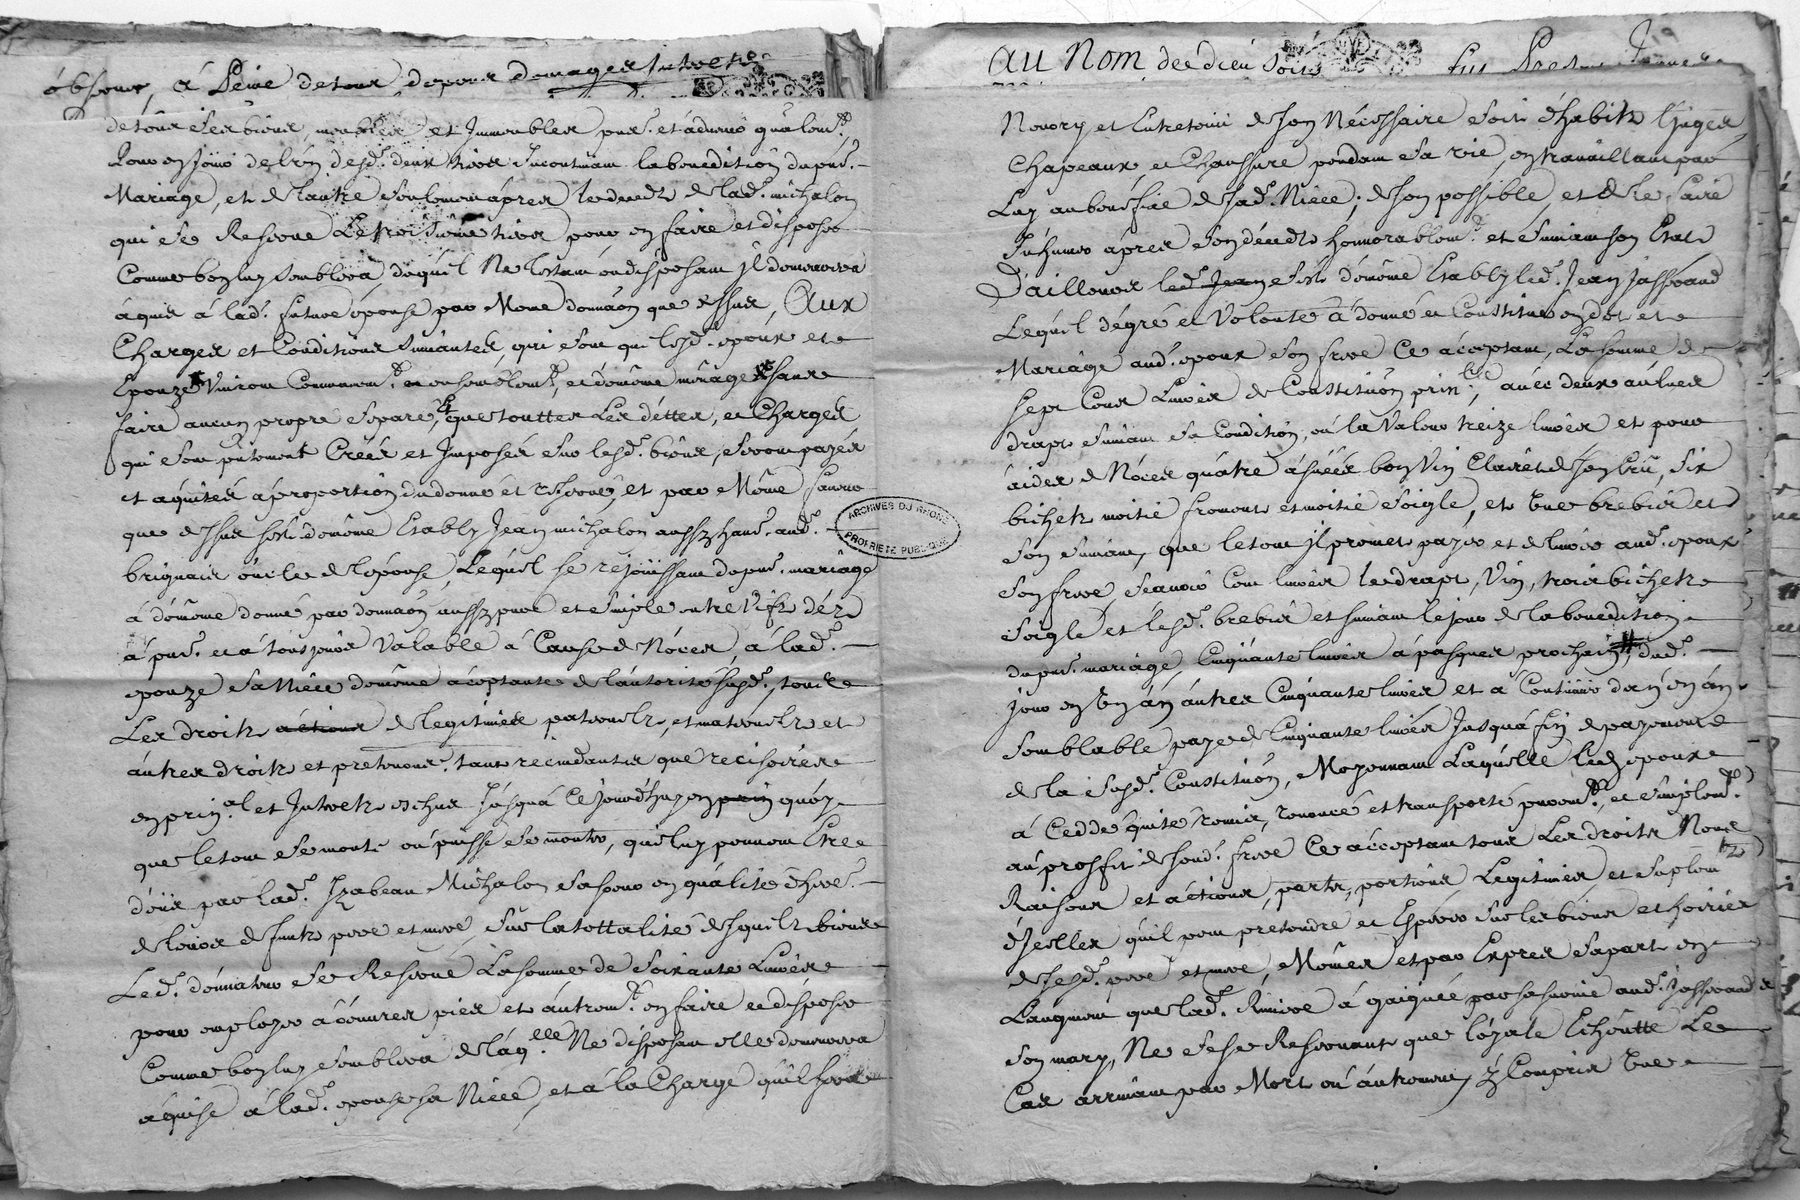 obserer, à Peine de tous, depens domages Interests
de tous ses biens, meubles et Immeubles pnts. et advenir qu'alont.
Pour en jouir de l'un desd. deux tiers Incontinant la benediction du pnt.
Mariage, et de l'autre seulement âpres le deceds de lad. michalon
qui se Reserve Le troisieme tiers pour en faire et disposer
Comme bon luy semblera, duquel Ne testant ou disposant jl demeurera
âquis â lad. future épouse par Meme donnaôn que dessus, Aux
Charges et Conditions suivantes, qui sont que lesd. epoux et
Epouze Vivront Communemt. et ensemblemt. en mêmeménage sans
faire aucun propre separé, que touttes Les déttes, et Charges
qui sont pntement Creés et Imposés sur lesd. biens, seront payés
et aquités âproportion du donné et réservé, et par Même
que dessus sest demême Etably Jean michalon aud.
brignais oncle de l'épouse, Lequel se réjoüissant du pnt. mariâge
â démême donné par donnaôn aussy pure et simple entre Vifs déz
â pnt. et â toûsjours Valable â Cause de Nôces, â lad.
epouze sa Niéce demême âcéptante de l'autorité susd., tous
Les droits actions de legitimes paternels, et maternels et
âutres droits et pretentions. tant recindants que recisoires
en prin.al et Interets échus Jusquâ Ce jourdhuy en prin quôy
que le tout se monte ou puisse se monter, qui luy peuvent Etre
deüs par lad. Izabeau Michalon sa soeur en quâlité d'here.
de leurs deffunts pere et mere, sur la tottalité desquels biens
Led. donnateur se Reservé La somme de soixante Livres
pour employer â oeuvres pies et âutremt. en faire et disposer
Comme bon luy semblera de laq.elle Ne disposant elle demeurera
âquise â lad. epouse sa Niéce, et â la Charge qu'il sera
AU NOM de dieu soit
Nourry et Entretenû de son Nécéssaire soit d'habits Linges
Chapeaux, et Chaussure pendant sa vie, en travaillant par
Luy au bénéfice de sad. Niéce, de son possible, et de le faire
Inhumer âpres son déceds honnorablemt. et suivant son Etat
D'ailleurs led. Jean s'est démême Etably led. Jean Jasserand
Lequel dégré et Volonté â donné et Constitué en dot et
Mariage aud. epoux son frere Ce âcceptant, La somme de
sept Cent Livres de Constitution prin.le, avec deux aulnes
drap suivant sa Condition, ou la Valeur treize livres et pour
âider es Nôces quâtre âsnées bon Vin Clairet de son Crû, six
bichets moitié froment et moitié seigle, et Une brebis et
son suivant, que le tout jl promet payer et delivrer aud. epoux
son frere sçavoir Cent livres led drap, Vin, trois bichets
seigle et lesd. brebis et suivant le jour de la benediction
du pnt. mariâge, Cinquante livres â pasques prochain, dud.
jour en Un ân autres Cinquante livres et â Continuer d'an en ân
semblable paye de Cinquante livres Jusquâ fin de payement
de la susd. Constitution, Moyennant Laquelle led epoux
â Ceddé quité, remis, renoncé et transporté puremt. et simplemt.
au proffit de sond. frere Ce âcceptant tous Les droits Noms
Raisons et actions, parts, portions, Legitimes et suplemts
d'Jcelles qu'il peut pretendre et Esperer sur les biens et hoiries
de sesd. pere et mere, Mêmes et par Exprés sa part en
Laugment que lad. â gaignée par la survie aud. Jasserand
son mary, Ne se Reservant que loyale Echûtte Le
Cas arrivant par Mort ou âutrement, y Compris Une
ARCHIVES DU RHONE
PROPRIETE PUBLIQUE